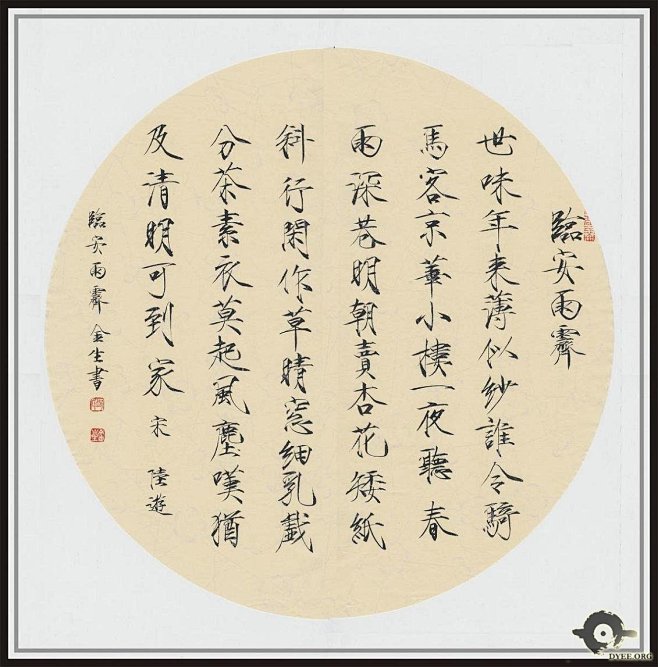 臨安雨霽
世味年来薄似紗誰令騎
馬客京華小樓一夜聽春
雨深巷明朝賣杏花矮紙
斜行閑作草晴窓細乳戲
分茶素衣莫起風塵嘆猶
及清明可到家 宋 陸遊
臨安雨霽 金生書
DYEE.ORG